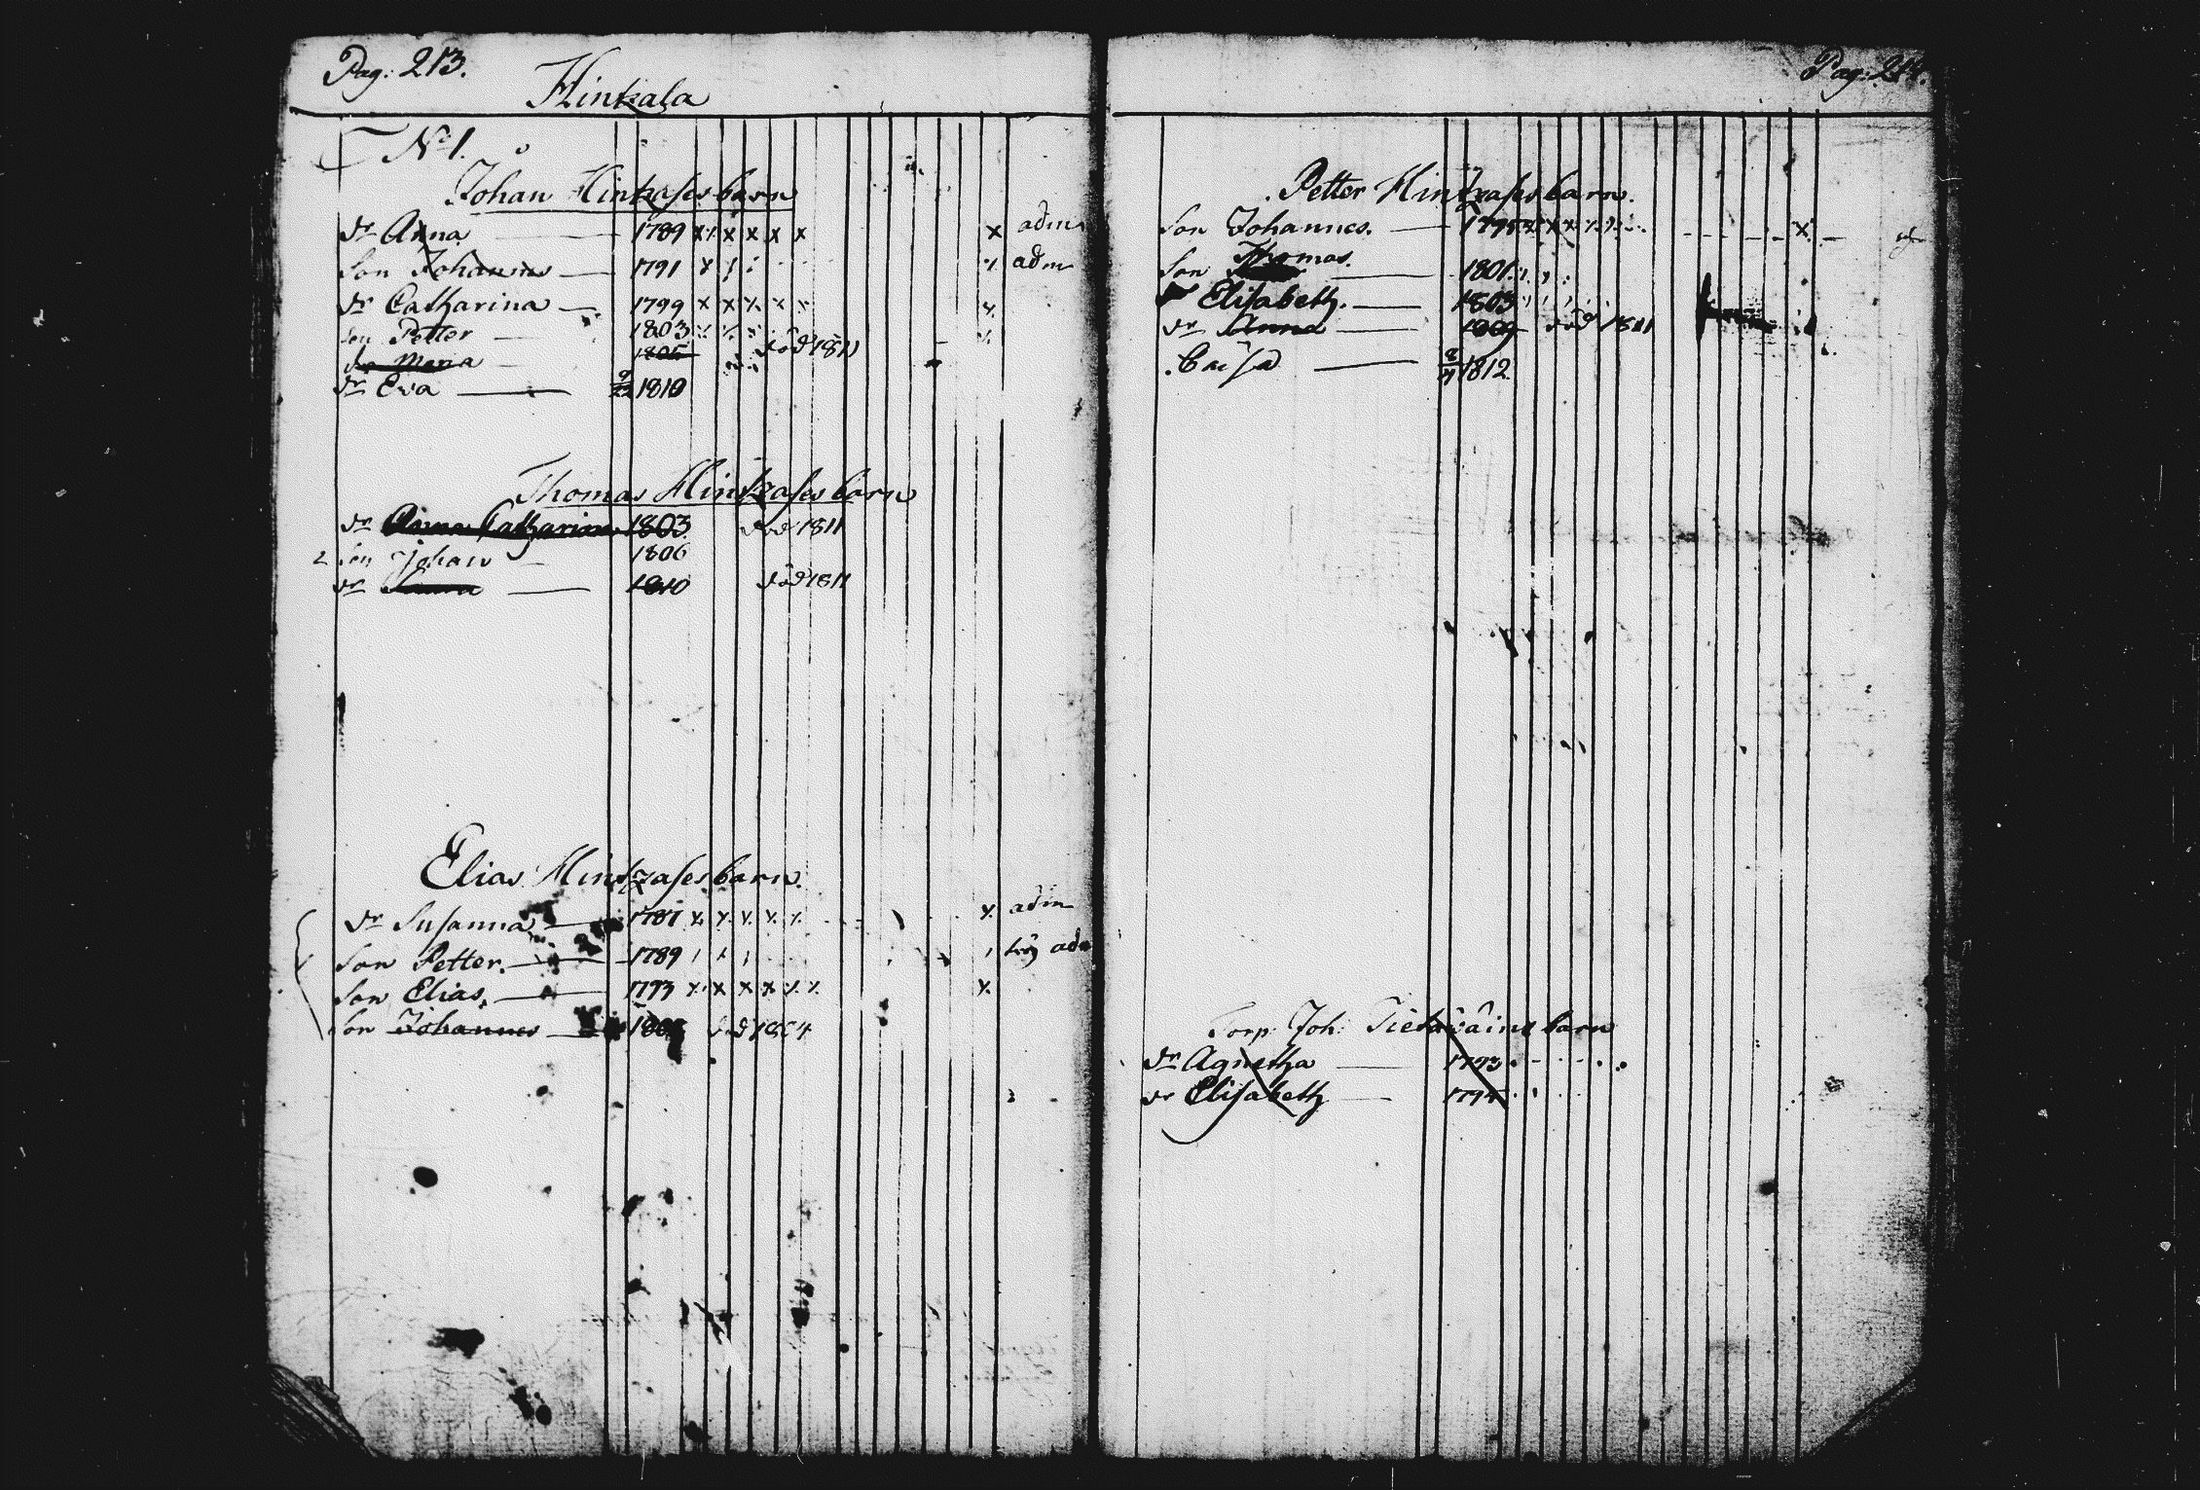 Pag: 213.
Hinkala
No 1.
Johan Hinkases barn
dr Anna 1789 x x x x x x x adm
Son Johannes 1791 x adm
dr Catharina 1799 x x x x x x
son Petter 1803
dr Maria 1805 död 1811
dr Ewa 9/22 1810
Thomas Hinkases barn
dr Anna Catharina 1803 död 1811
2 son Johan 1806
dr 1810 död 1811
Elias Hinkases barn
dr Susanna 1787 x x x x x x adm
Son Petter. 1789 adm
Son Elias. 1793 x x x x x x x
Son Johannes död
Pag: 214.
Petter Hinkases barn.
Son Johannes. 1795 x
Son Thomas. 1801
Elisabeth. 1803
dr Anna 1809 död 1811
Caisa 1812
Torp: Joh: barn
dr Agnetha 1793
dr Elisabeth 1795